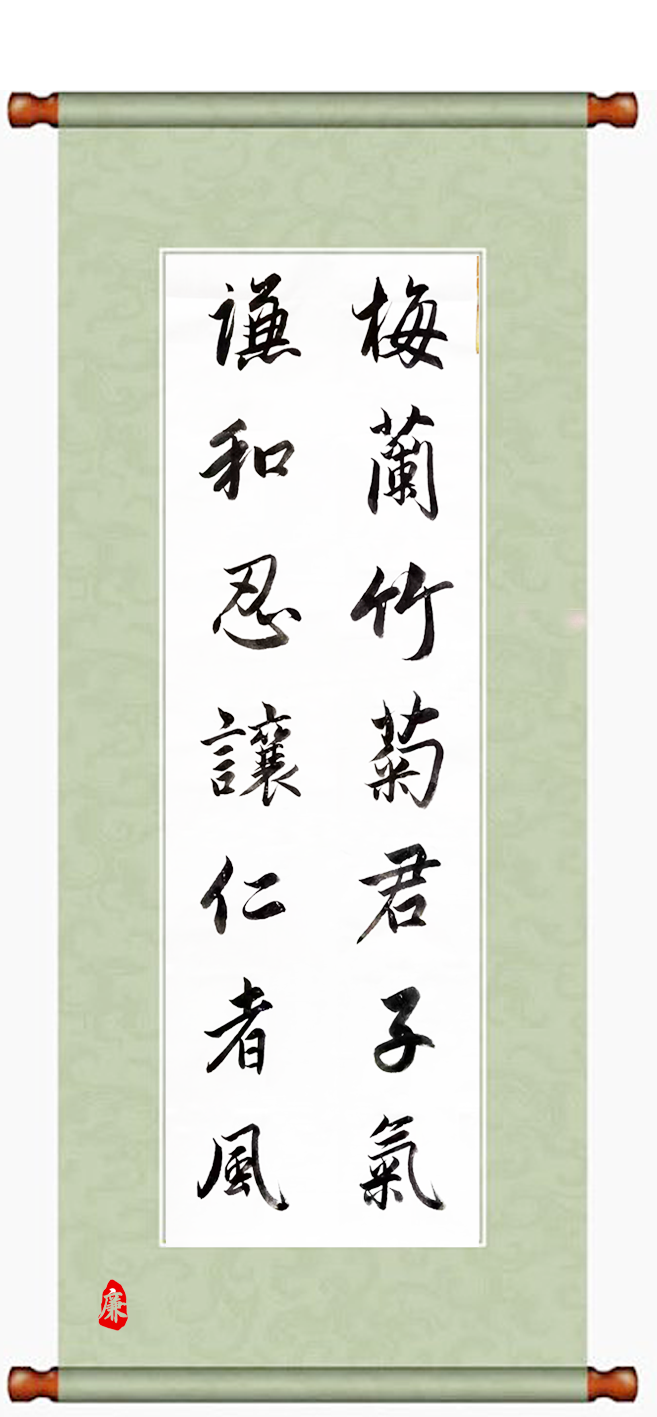 梅蘭竹菊君子氣
謙和忍讓仁者風
廉